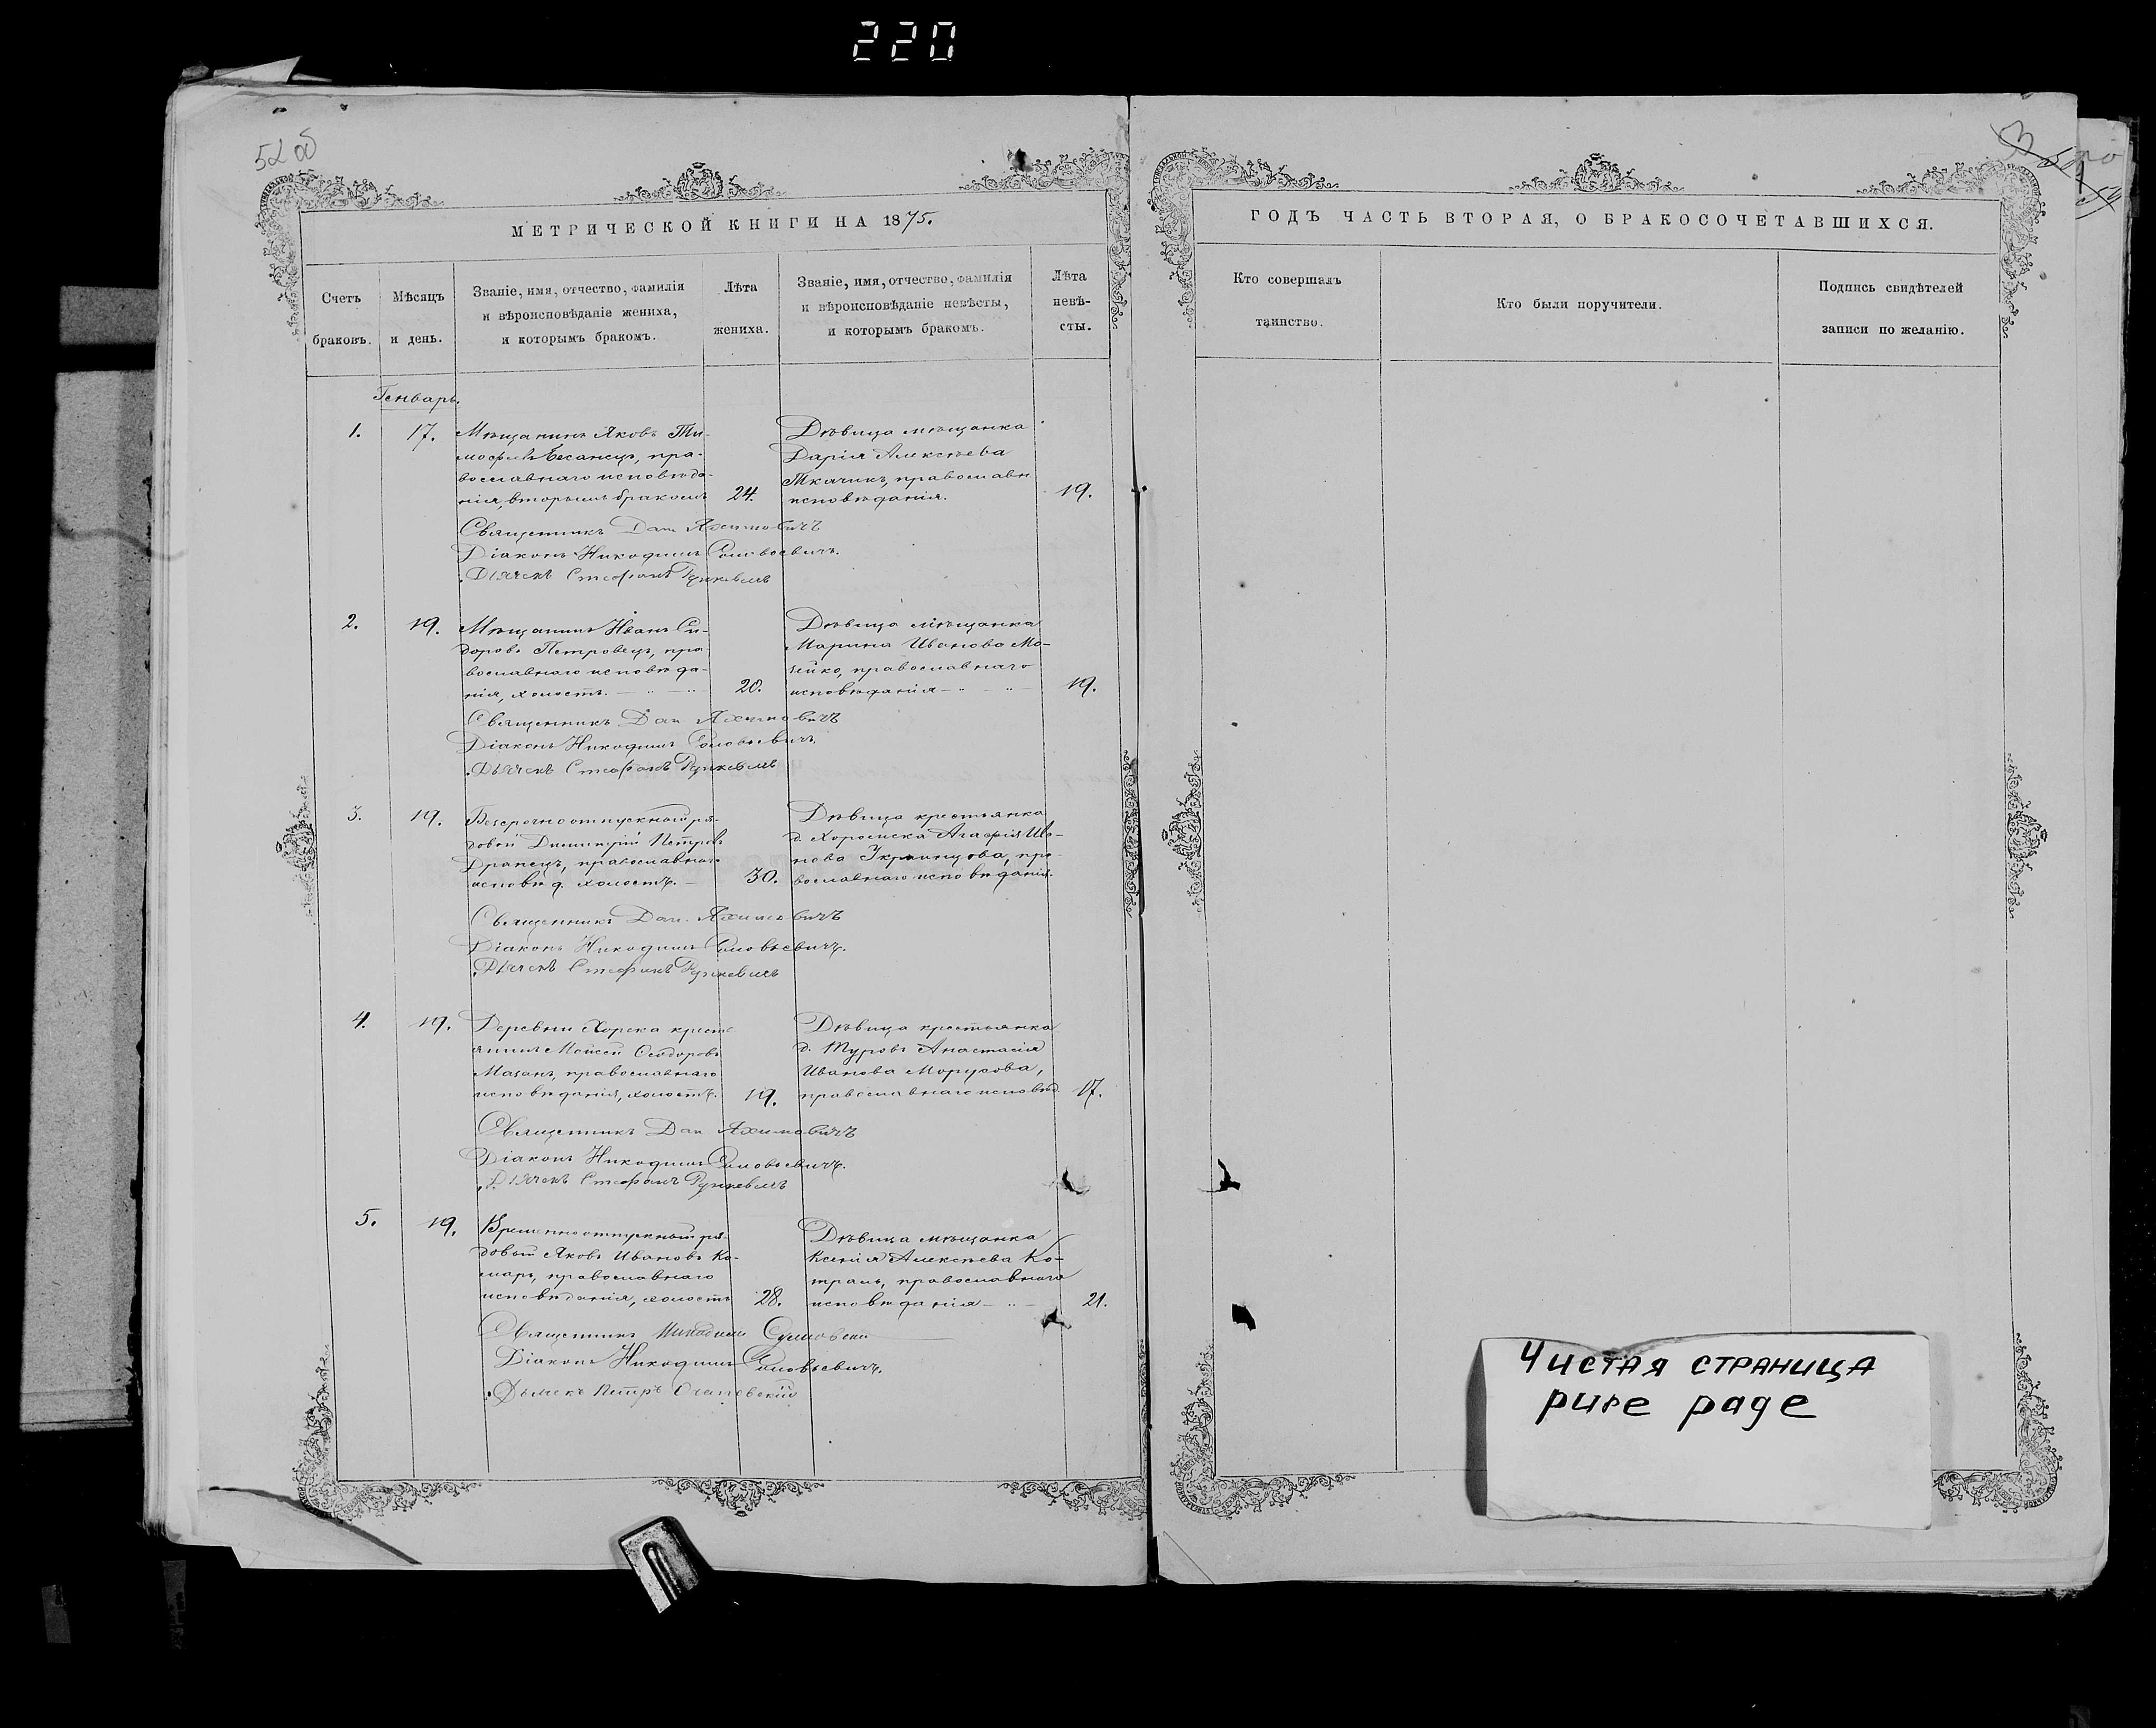 220
52 об
МЕТРИЧЕСКОЙ КНИГИ НА 1875.
Счетъ браковъ.
Мѣсяцъ и день.
Званіе, имя, отчество, фамилія
и вѣроисповѣданіе жениха,
и которымъ бракомъ.
Лѣта
жениха.
Званіе, имя, отчество, фамилія
и вѣроисповѣданіе невѣсты,
и которымъ бракомъ.
Лѣта
невѣ-
сты.
Генварь.
1.
17.
Мѣщанинъ Яковъ Ти-
мофеевъ, пра-
вославнаго исповѣда-
нія, вторымъ бракомъ
24.
Дѣвица мѣщанка
Дарія Алексѣева
Ткачикъ, православн
исповѣданія.
19.
Священникъ Дан Яхимовичъ
Діаконъ Никодимъ Соловьевичъ.
Дьячекъ Стефанъ Рункевичъ
2.
19.
Мѣщанинъ Иванъ Си-
доровъ Петровецъ, пра
вославнаго исповѣда-
нія, холостъ.
20.
Дѣвица мѣщанка
Марина Иванова Мо-
зейко, православнаго
исповѣданія
19.
Священникъ Дан Яхимовичъ
Діаконъ Никодимъ Соловьевичъ.
Дьячекъ Стефанъ Рункевичъ
3.
19.
Безсрочноотпускной ря-
довой Димитрій Петровъ
Драпецъ, православнаго
исповѣд. холостъ.
30.
Дѣвица крестьянка
д. Хоромска Агафія Ива-
нова Украинцова, пра-
вославнаго исповѣданія.
Священникъ Дан. Яхимовичъ
Діаконъ Никодимъ Соловьевичъ.
Дьячекъ Стефанъ Рункевичъ
4.
19.
Деревни Хорска кресть
янинъ Моисей Ѳеодоровъ
Мазанъ, православнаго
исповѣданія, холостъ.
19.
Дѣвица крестьянка
д. Туровъ Анастасія
Иванова Морусова,
православнаго исповѣд.
17.
Священникъ Дан Яхимовичъ
Діаконъ Никодимъ Соловьевичъ.
Дьячекъ Стефанъ Рункевичъ
5.
19.
Временноотпускной ря-
довой Яковъ Ивановъ Ко-
маръ, православнаго
исповѣданія, холостъ
28.
Дѣвица мѣщанка
Ксенія Алексѣева Ко-
траль, православнаго
исповѣданія
21.
Священникъ
Діаконъ Никодимъ Соловьевичъ.
Петръ
ГОДЪ ЧАСТЬ ВТОРАЯ, О БРАКОСОЧЕТАВШИХСЯ.
Кто совершалъ
таинство.
Кто были поручители.
Подпись свидѣтелей
записи по желанію.
Чистая страница
pure page